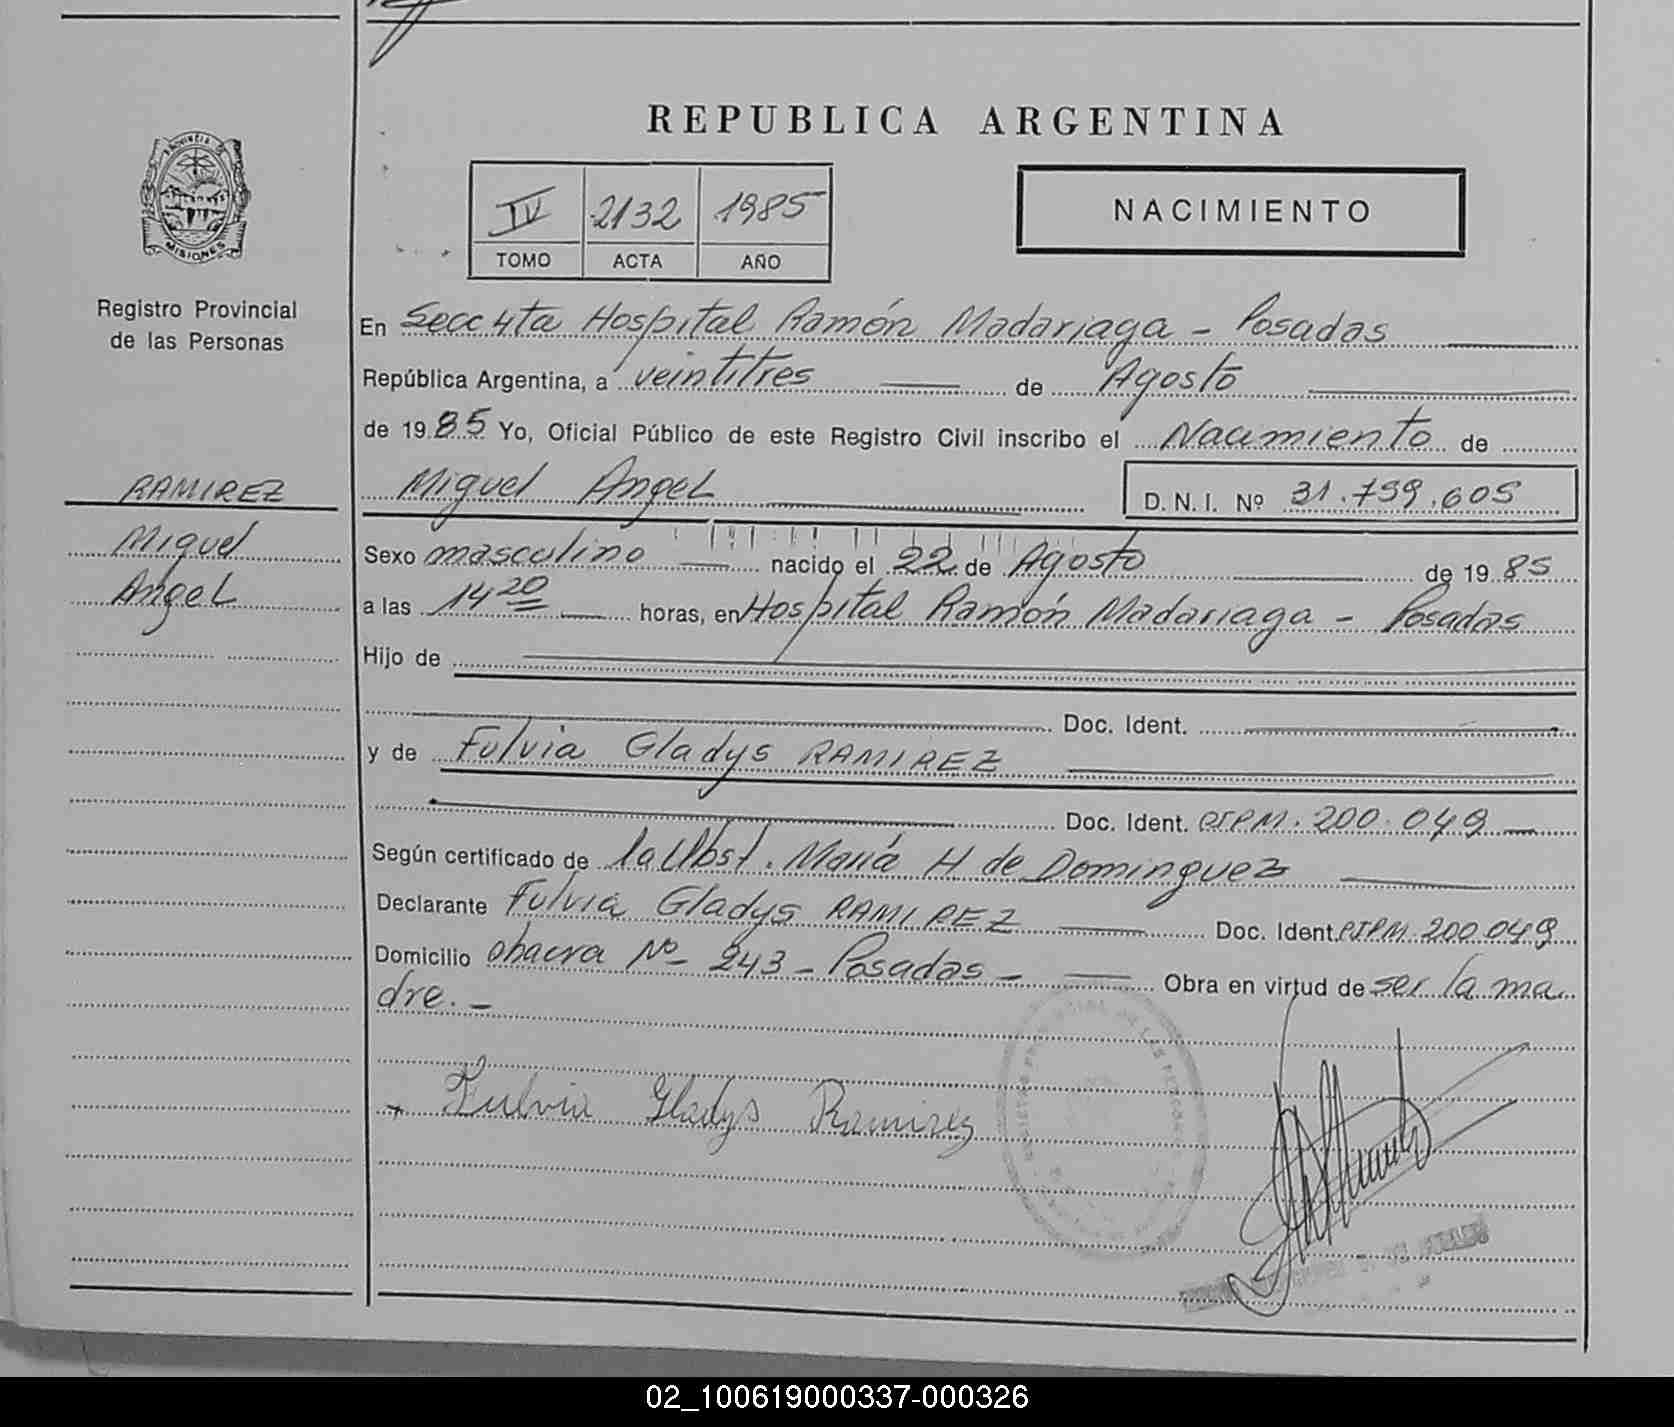 REPUBLICA ARGENTINA
PROVINCIA DE
MISIONES
Registro Provincial
de las Personas
IV 2132 1985
TOMO ACTA AÑO
NACIMIENTO
En Secc 4ta Hospital Ramón Madariaga - Posadas
República Argentina, a veintitres de Agosto
de 1985 Yo, Oficial Público de este Registro Civil inscribo el Nacimiento de
RAMIREZ
Miguel
Angel
Miguel Angel D. N. I. Nº 31.759.605
Sexo masculino nacido el 22 de Agosto de 1985
a las 14 20 horas, en Hospital Ramón Madariaga - Posadas
Hijo de
Doc. Ident.
y de Fulvia Gladys RAMIREZ
Doc. Ident. CIPM. 200.049
Según certificado de la Obst. María H de Dominguez
Declarante Fulvia Gladys RAMIREZ Doc. Ident. CIPM. 200.049
Domicilio chacra Nº 243 - Posadas - Obra en virtud de ser la ma
dre. -
Fulvia Gladys Ramirez
02_100619000337-000326